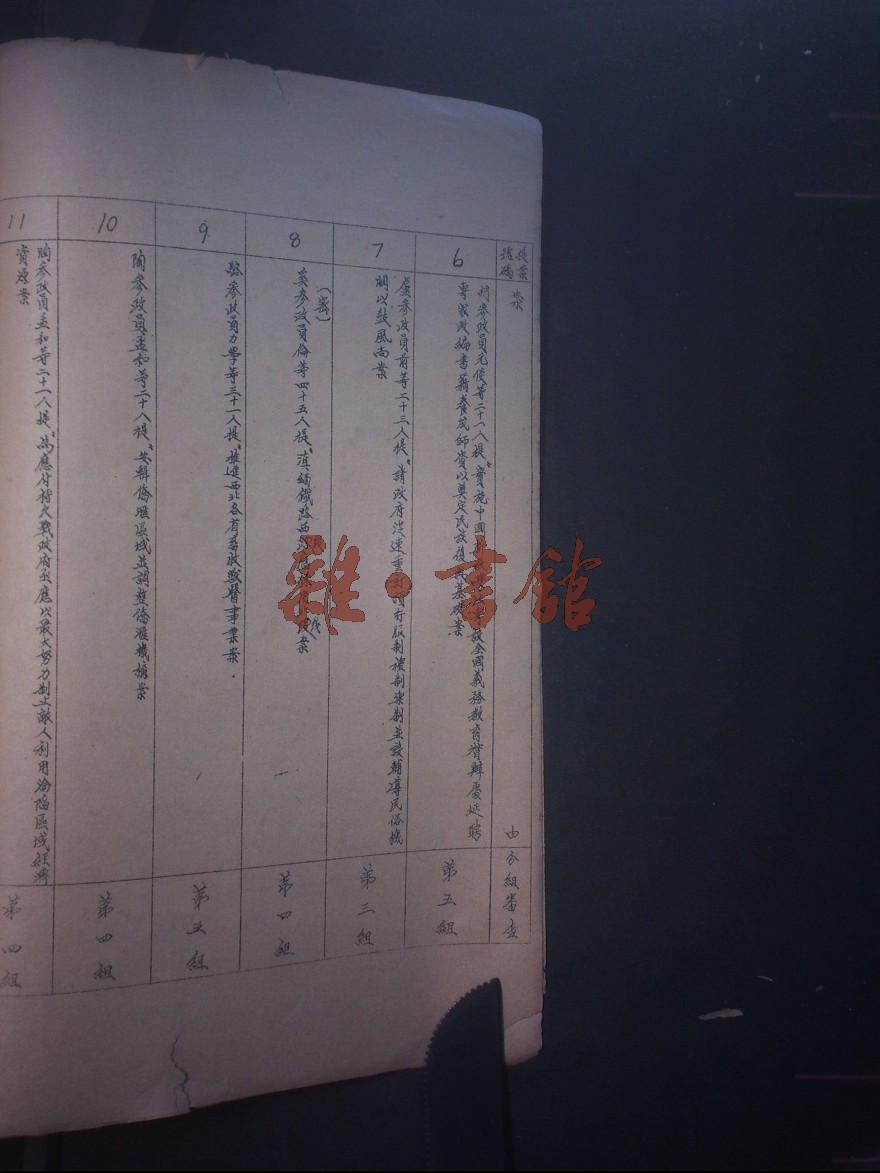 提案號碼
案
由
分組審查
6
胡參政員元倓等二十一人提，實施中國
設全國義務教育督辦處延聘
專家改編書籍養成師資以奠定民族復興基礎案
第五組
7
盧參政員前等二十三人提，請政府從速重訂頒行服制禮制樂制並設輔導民俗機
關以鼓風尚案
第三組
8
（密）
奚參政員倫等四十五人提，滇緬鐵路西
案
第四組
9
駱參政員力學等三十一人提，推進西北各省
事業案
第五組
10
陶參政員孟和等二十人提，安輯僑匯區域並調整僑匯機構案
第四組
11
陶參政員孟和等二十一人提，為應付持久戰政府亟應以最大努力制止敵人利用淪陷區域經濟
資源案
第四組
雜·書館